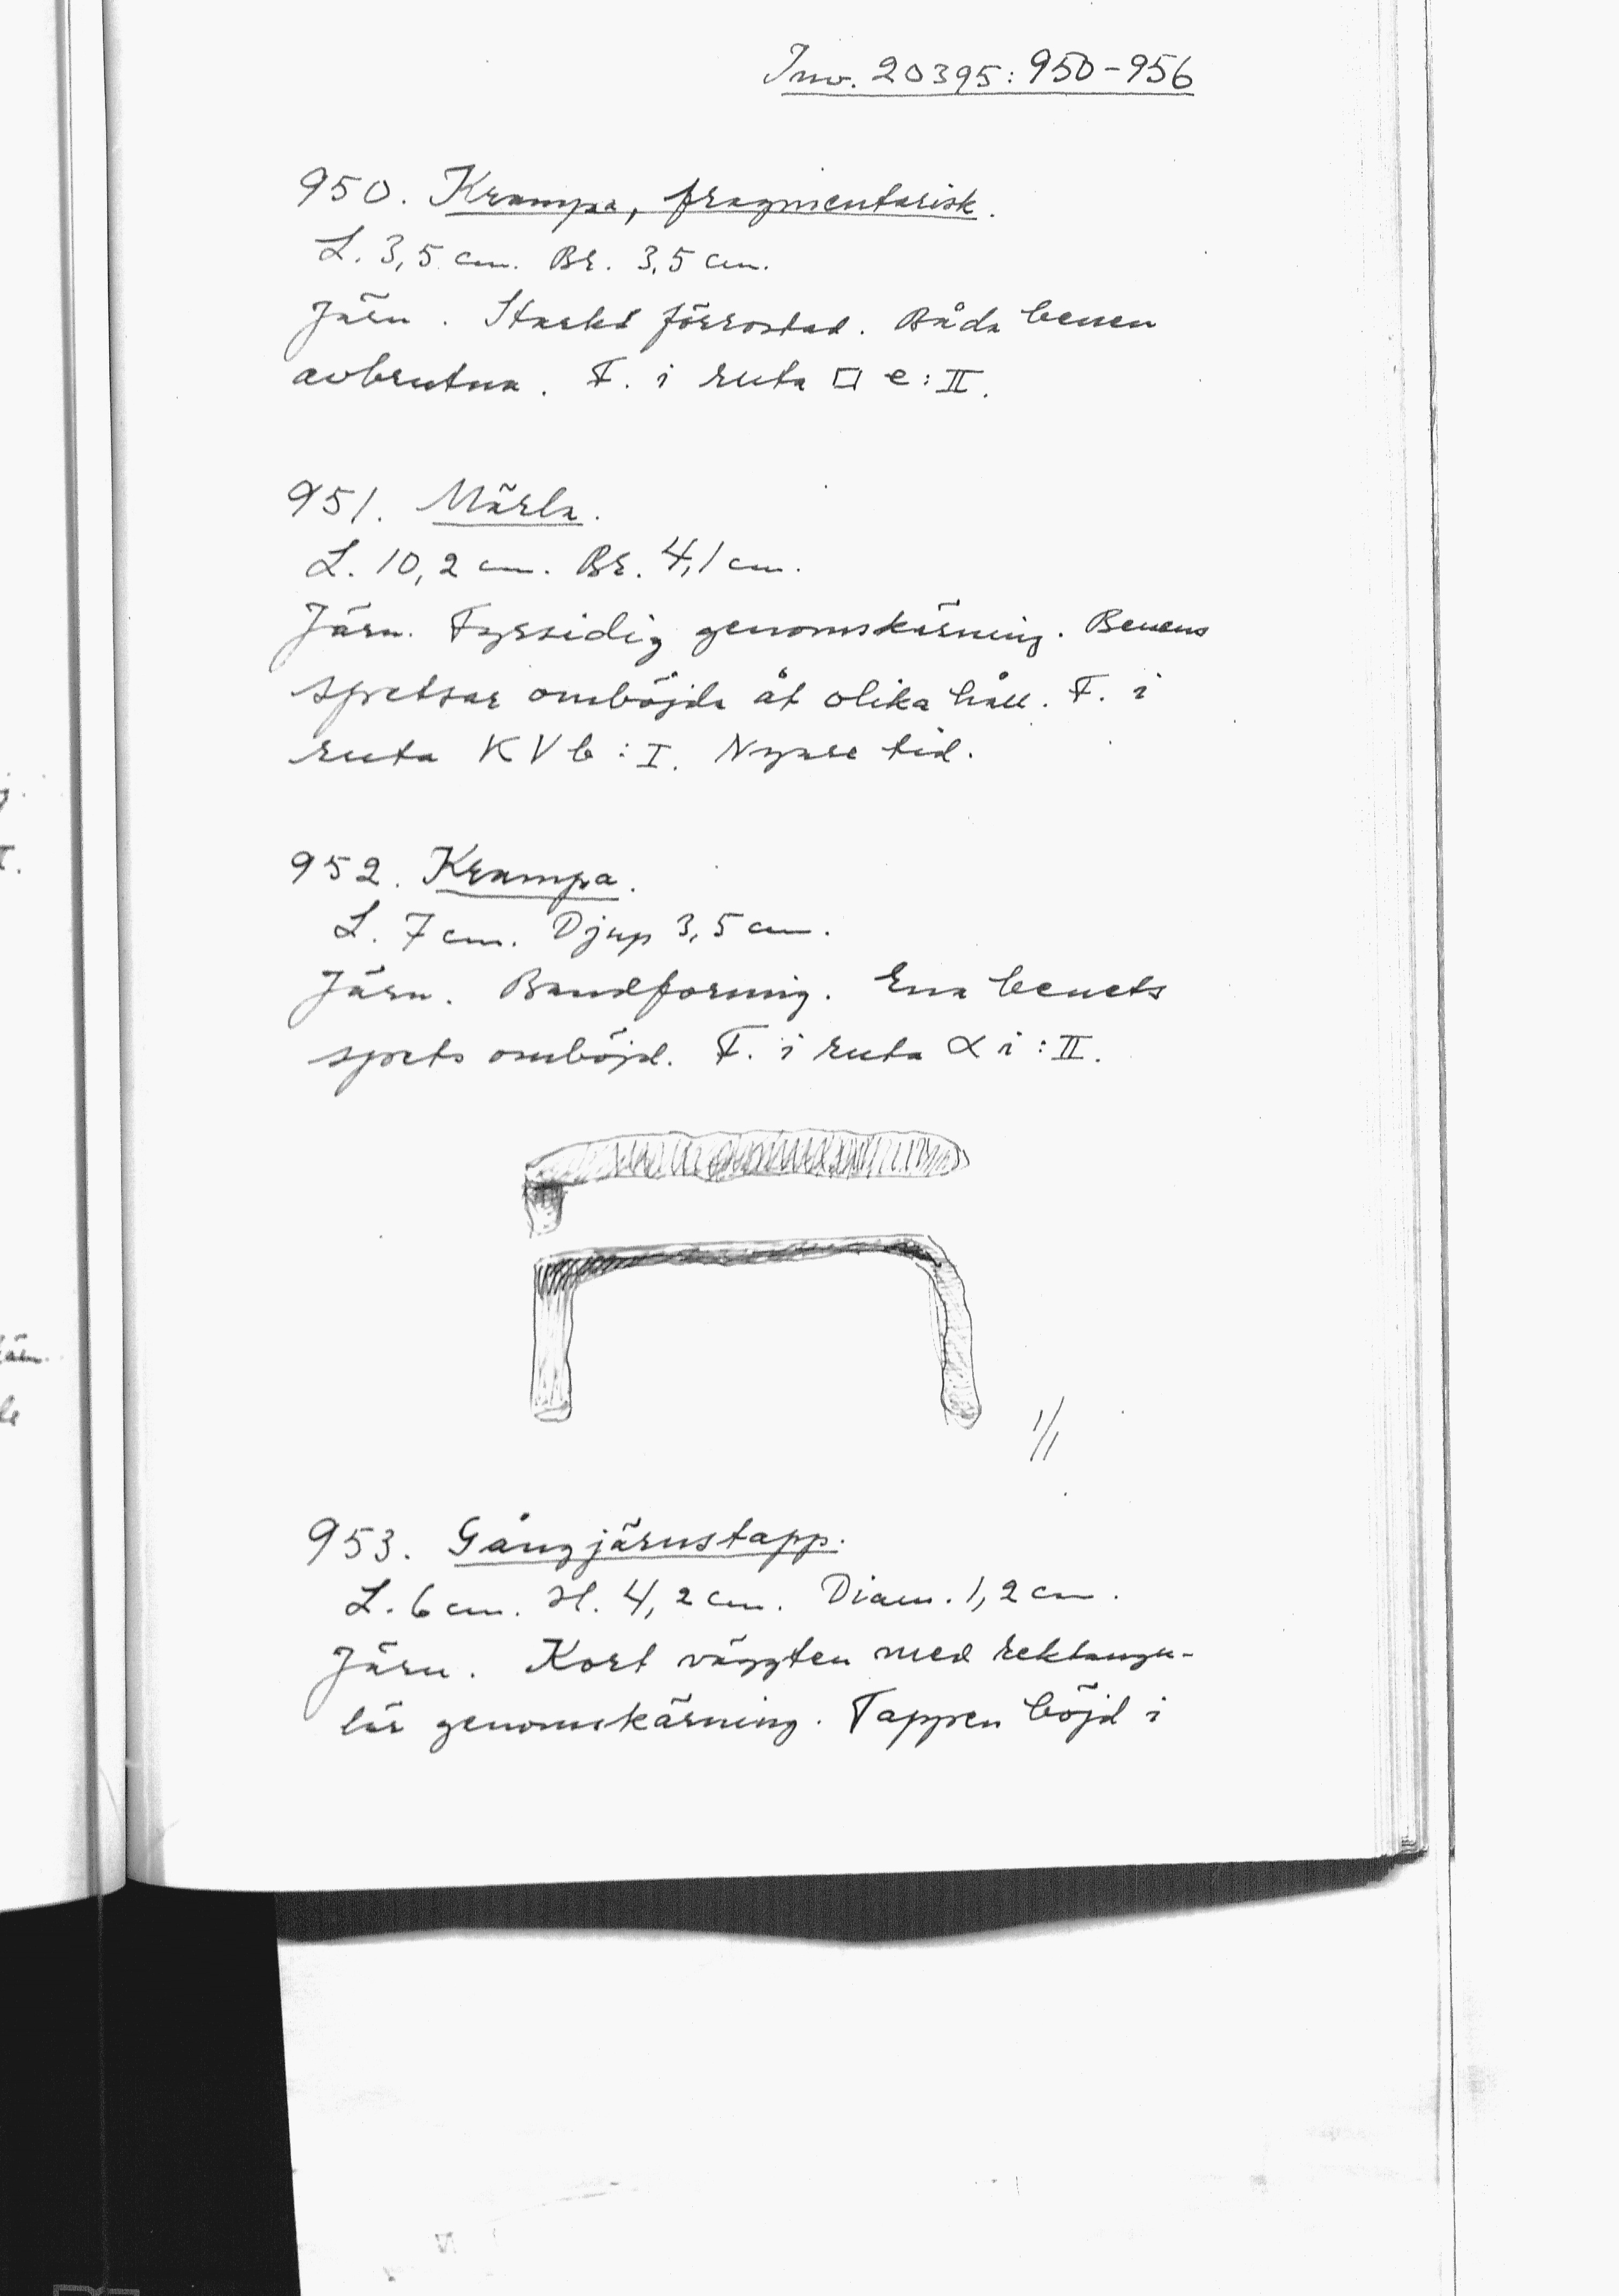 Inv. 20395:950-956
950. Krampa, fragmentarisk.
L. 3,5 cm. Br. 3,5 cm.
Järn. Starkt förrostad. Båda benen
avbrutna. F. i ruta □ e:II.
951. Märla.
L. 10,2 cm. Br. 4,1 cm.
Järn. Fyrsidig genomskärning. Benens
spetsar omböjda åt olika håll. F. i
ruta KVb:I. Nyare tid.
952. Krampa.
L. 7 cm. Djup 3,5 cm.
Järn. Bandformig. Ena benets
spets omböjd. F. i ruta α i:II.
1/1
953. Gångjärnstapp.
L. 6 cm. H. 4,2 cm. Diam. 1,2 cm.
Järn. Kort väggten med rektangu-
lär genomskärning. Tappen böjd i